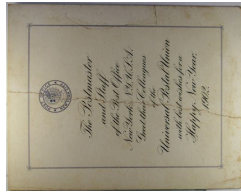 The Postmaster
and Staff
of the Post Office
New York, N.Y., U.S.A.
Greet their Colleagues
of the
Universal Postal Union
with best wishes for a
Happy New Year,
1902.